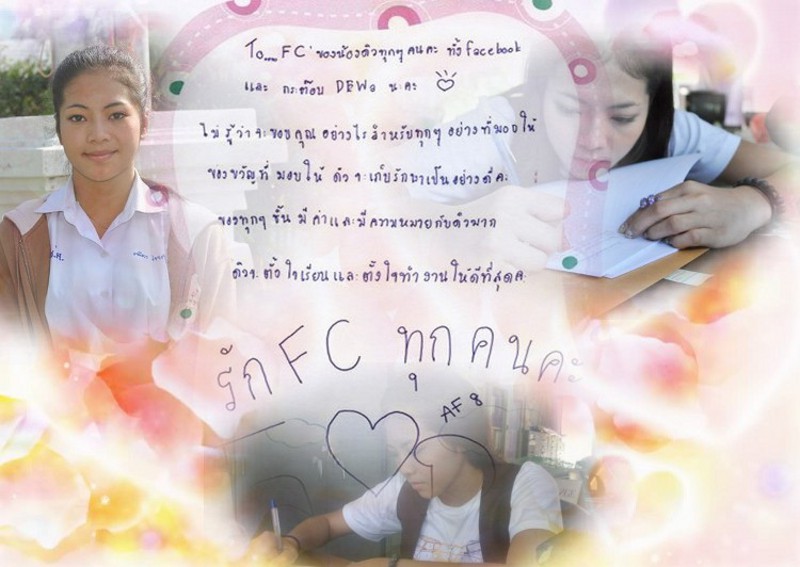 To....FC' ของน้องดิวทุกๆ คนคะ ทั้ง facebook
และ กระต๊อบ DEWs นะคะ
ไม่ รู้ว่าจะขอบคุณ อย่างไรสำหรับทุกๆ อย่างที่มอบให้
ของขวัญที่ มอบให้ ดิวจะเก็บรักษาเป็นอย่างดีคะ
ของทุกๆ ชิ้น มีค่าและมีความหมายกับดิวมาก
ดิวจะตั้งใจเรียนและตั้งใจทำงานให้ดีที่สุดคะ
รักFC ทุกคนคะ
AF 8